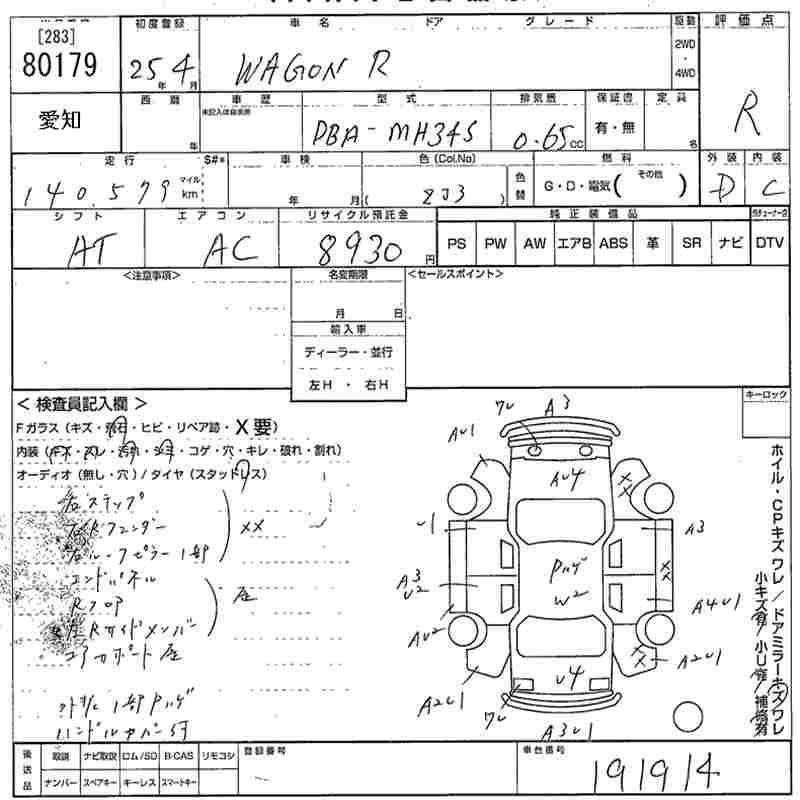 [283]
80179
初度登録
25年4月
車名 ドア グレード
WAGON R
駆動
2WD
・
4WD
評価点
R
愛知
西暦
年
車歴
未記入は自家用
型式
DBA-MH34S
排気量
0.65cc
保証書
有・無
定員
名
走行
140,579
マイル
km
S#*
車検
年 月
色(Col.No)
( ZJ3 )
色替
燃料
G・D・電気( その他 )
外装
D
内装
C
シフト
AT
エアコン
AC
リサイクル預託金
8930円
純正装備品
PS PW AW エアB ABS 革 SR ナビ
DTV
<注意事項>
名変期限
月 日
輸入車
ディーラー・並行
左H ・ 右H
<セールスポイント>
<検査員記入欄>
Fガラス(キズ・飛石・ヒビ・リペア跡・X要)
内装(キズ・スレ・汚れ・シミ・コゲ・穴・キレ・破れ・割れ)
オーディオ(無し・穴)/タイヤ(スタッドレス)
右ステップ
右Rフェンダー XX
右ルーフピラー1部
エンドパネル
Rフロア 歪
右Rサイドメンバー
コアサポート歪
外装1部Pハゲ
ハンドルカバー付
ワレ A3
AU1
AU4
XX
U1
A3
A3
U2
Pハゲ
W2
XX
A4U1
AU2
XX
A2U1
U4
A2U1
ワレ
A3U1
キーロック
ホイル・CPキズワレ/ドアミラーキズワレ
小キズ有/小U有/補修有
後送品
取説 ナビ取説 ロム/SD B-CAS リモコン
ナンバー スペアキー キーレス スマートキー
登録番号
車台番号
191914